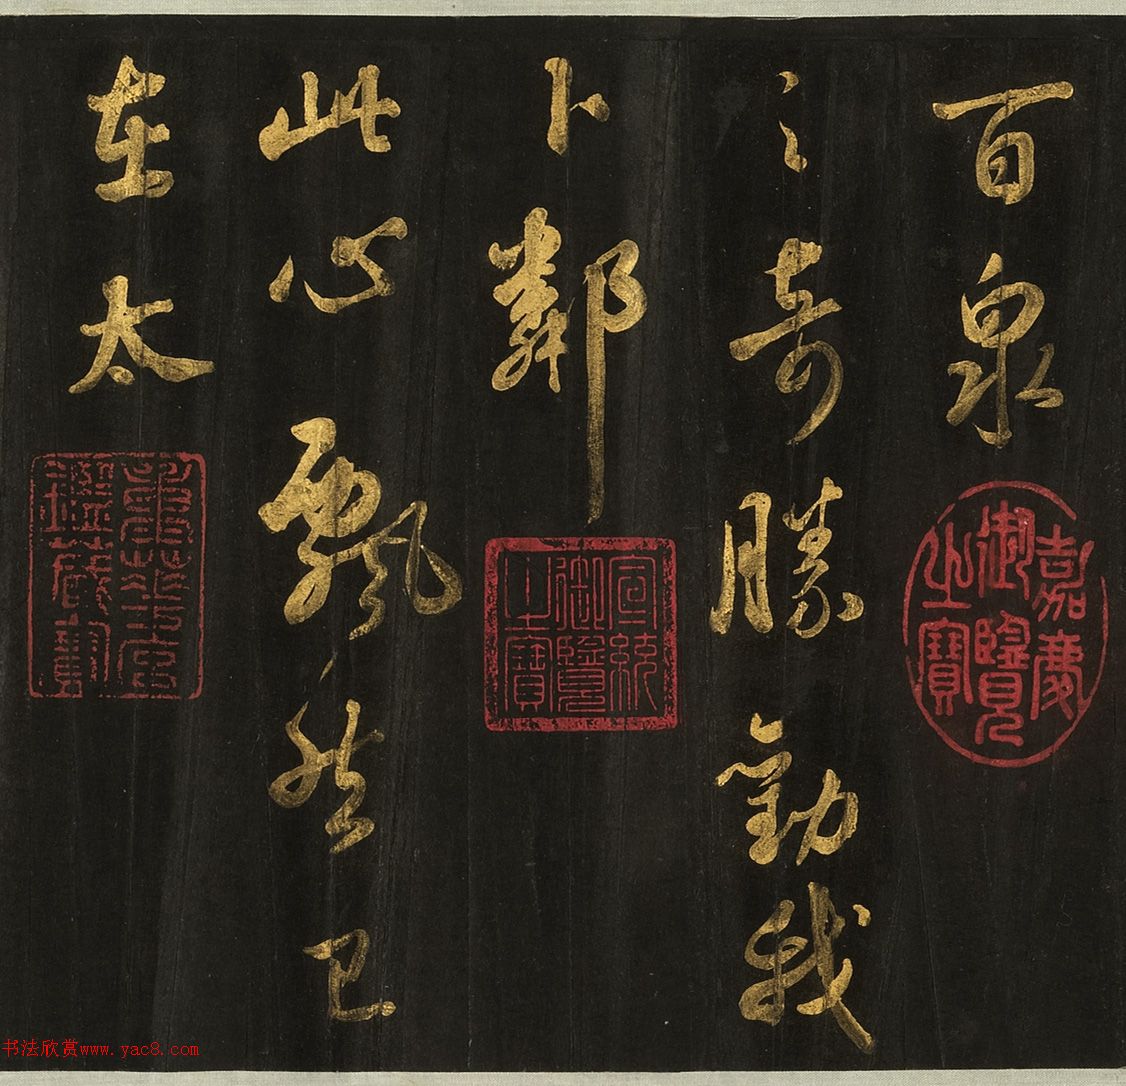 百泉
之奇勝勸我
卜鄰
此心飄然已
在太
嘉慶御覽之寶
宣統御覽之寶
鑑藏
书法欣赏www.yac8.com